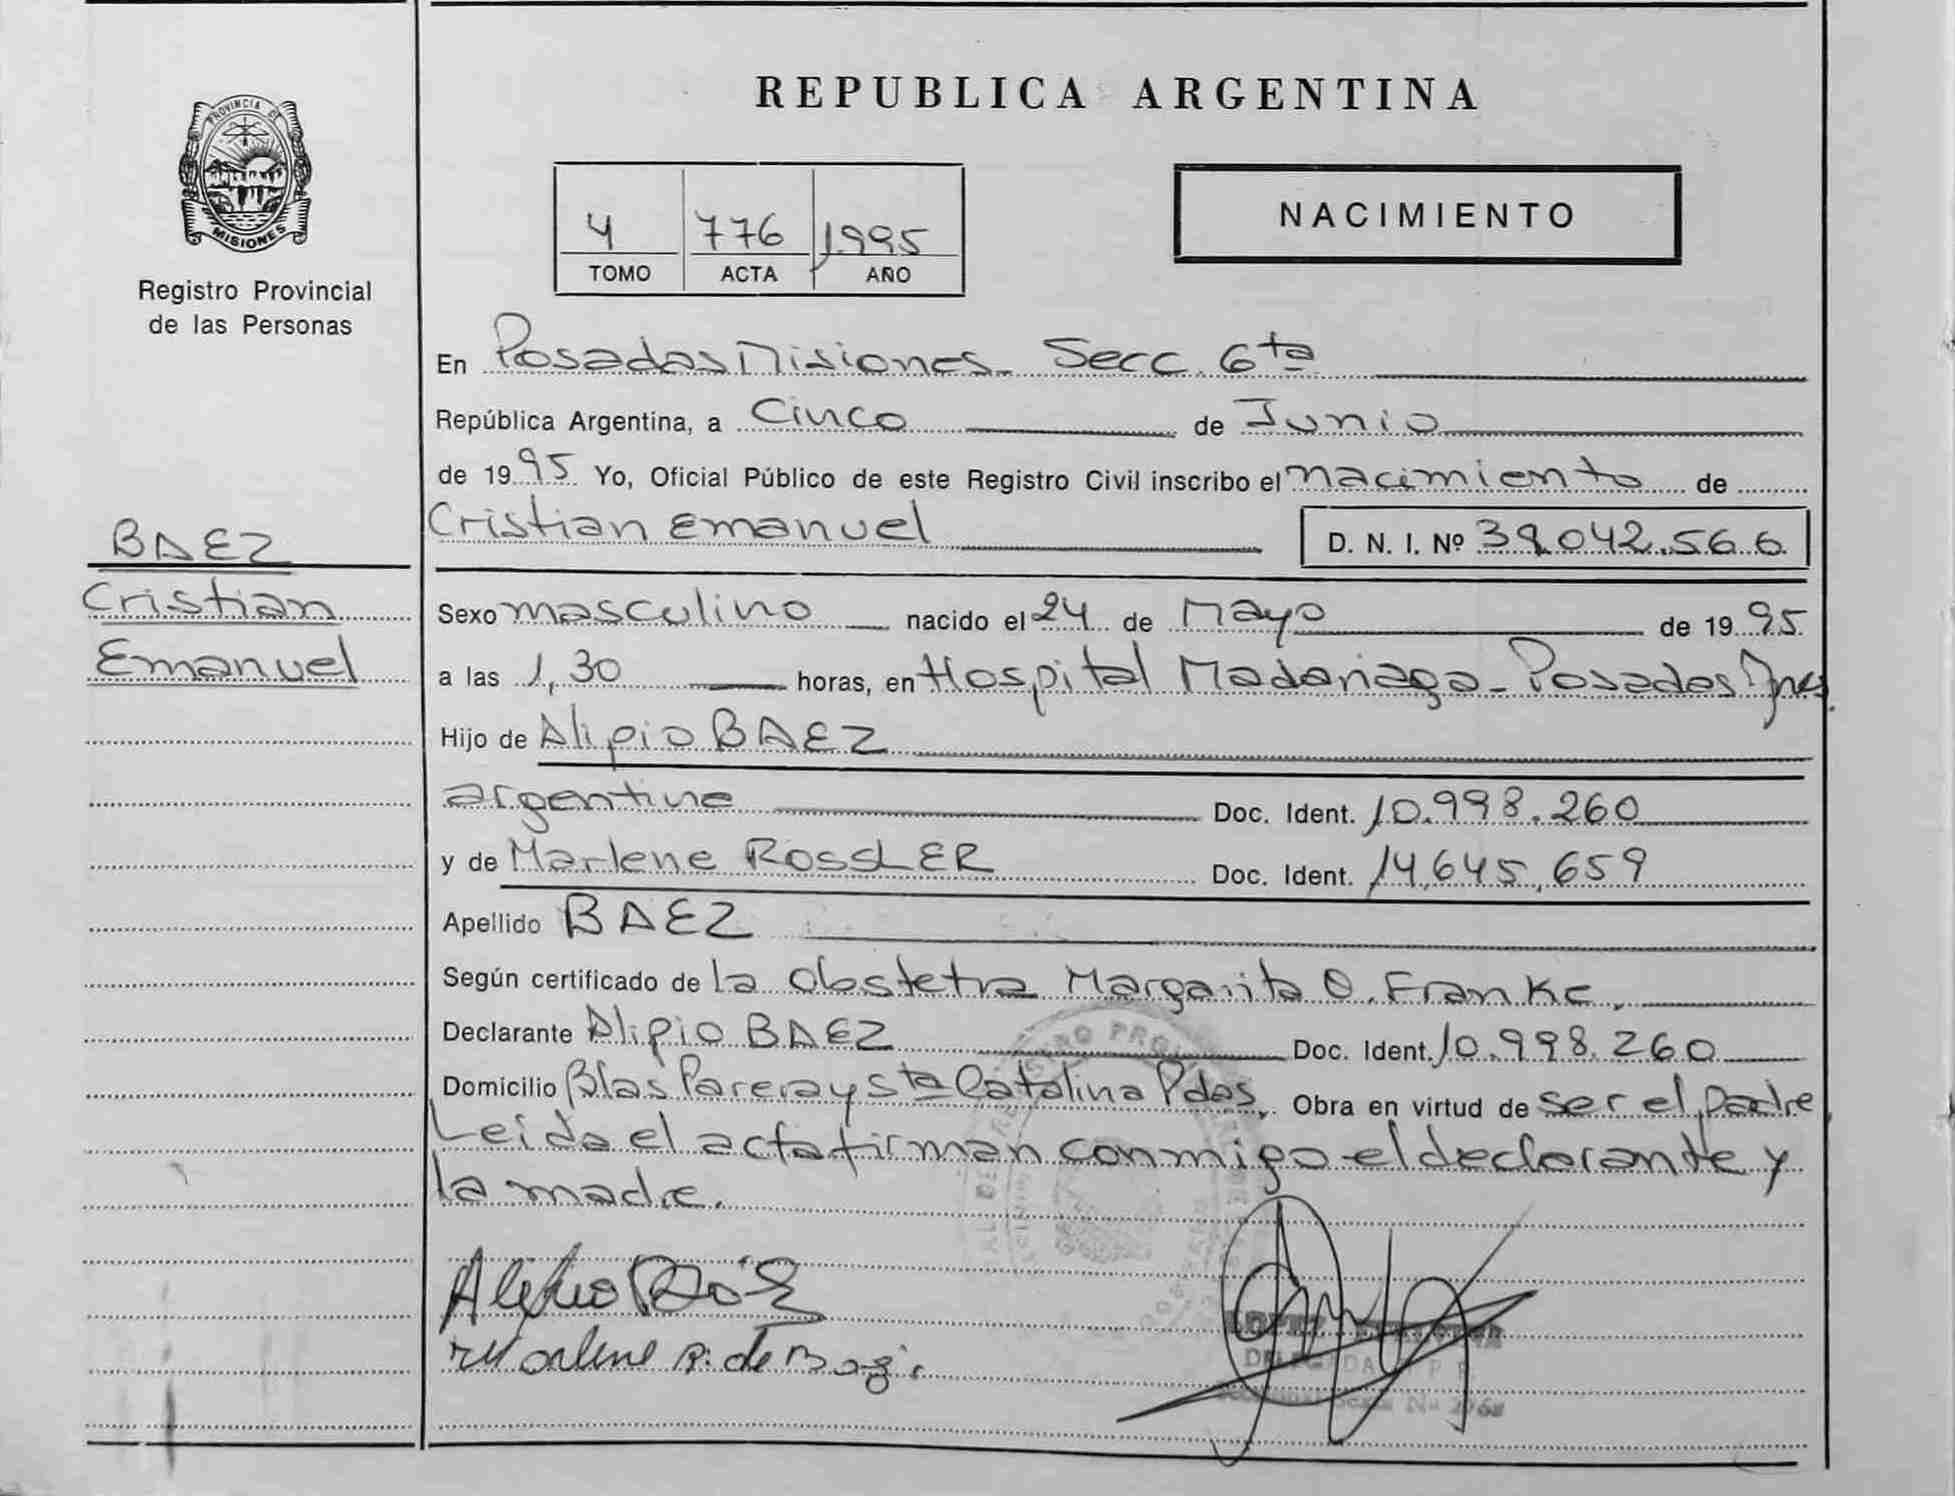 PROVINCIA DE
MISIONES
Registro Provincial
de las Personas
BAEZ
Cristian
Emanuel
REPUBLICA ARGENTINA
4 776 1995
TOMO ACTA AÑO
NACIMIENTO
En Posadas Misiones. Secc. 6ta
República Argentina, a Cinco de Junio
de 1995 Yo, Oficial Público de este Registro Civil inscribo el nacimiento de
Cristian Emanuel D. N. I. Nº 39.042.566
Sexo masculino nacido el 24 de Mayo de 1995
a las 1,30 horas, en Hospital Madariaga - Posadas Mnes.
Hijo de Alipio BAEZ
argentino Doc. Ident. 10.998.260
y de Marlene ROSSLER Doc. Ident. 14,645,659
Apellido BAEZ
Según certificado de la Obstetra Margarita O. Franke.
Declarante Alipio BAEZ Doc. Ident. 10.998.260
Domicilio Blas Parera y Sta Catalina Pdas. Obra en virtud de ser el padre.
Leida el acta firman conmigo el declarante y
la madre.
Marlene R. de
DELEGADA